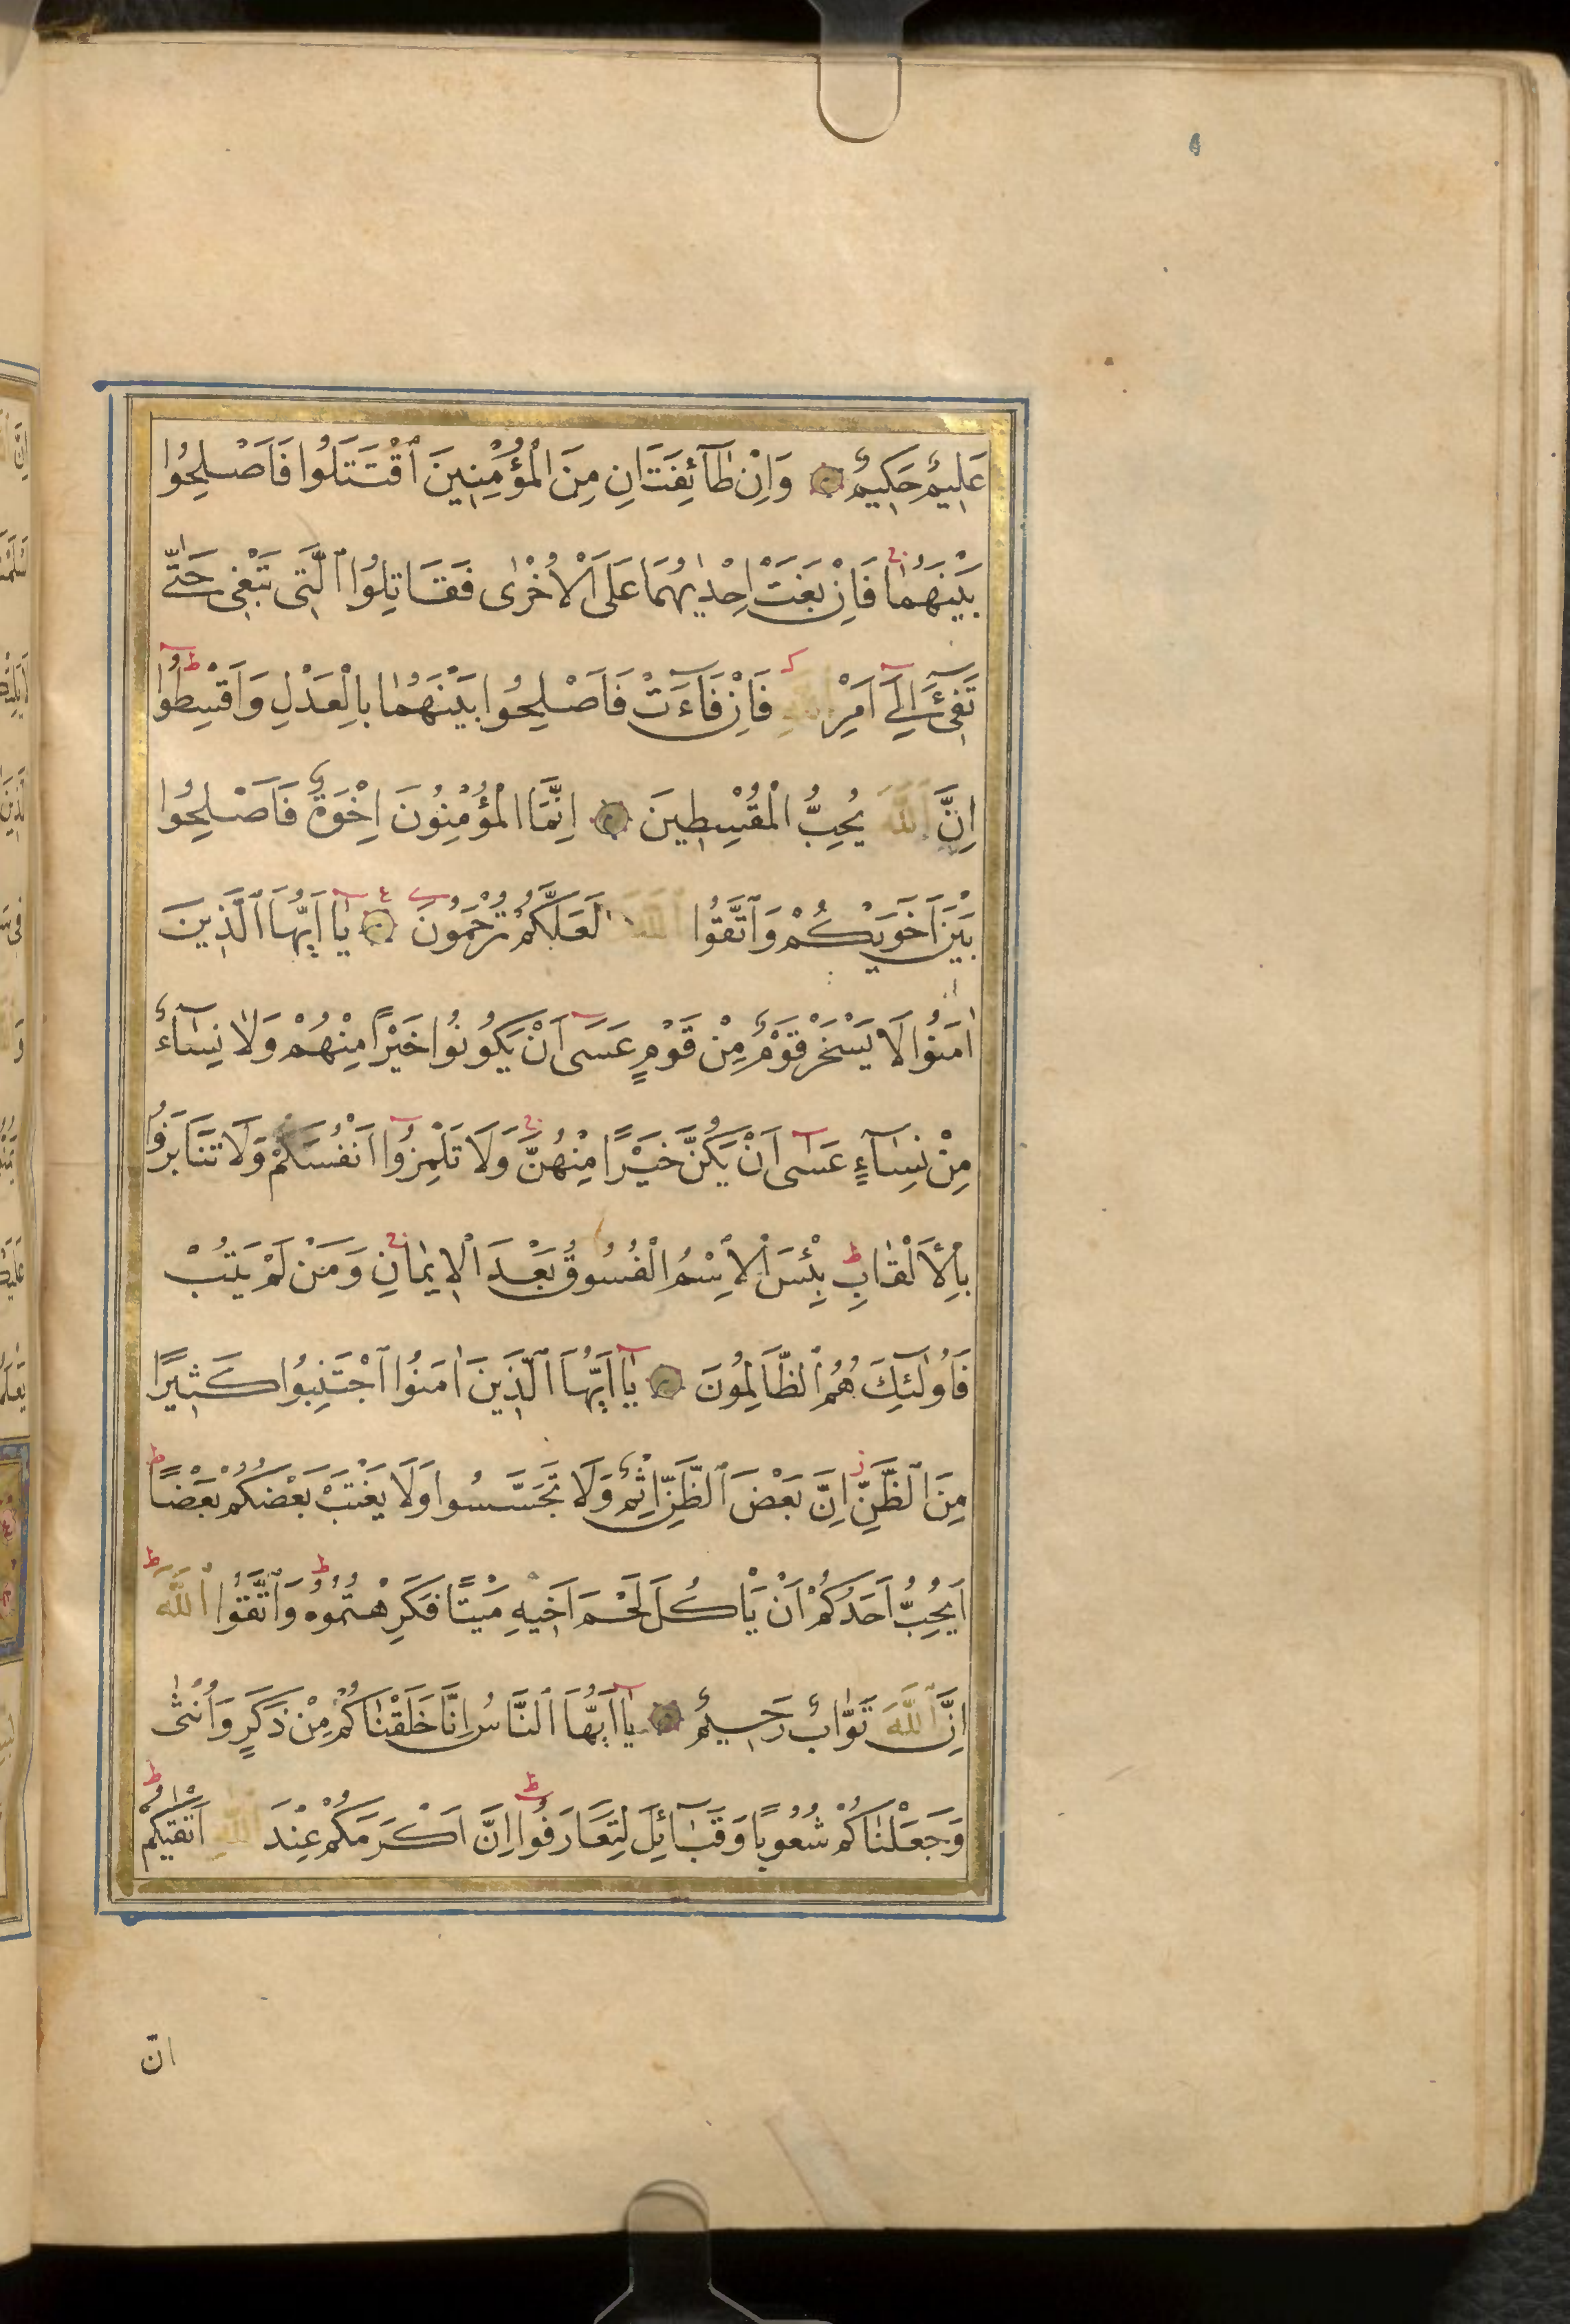 عَلِيمٌ حَكِيمٌ وَاِنْ طَآئِفَتَانِ مِنَ الْمُؤْمِنِينَ ٱقْتَتَلُوا فَاَصْلِحُوا
بَيْنَهُمَا فَاِنْ بَغَتْ اِحْدٰيهُمَا عَلَى الْاُخْرٰى فَقَاتِلُوا ٱلَّتِى تَبْغِى حَتّٰى
تَفِىٓءَ اِلٰٓى اَمْرِ اللّٰهِ فَاِنْ فَآءَتْ فَاَصْلِحُوا بَيْنَهُمَا بِالْعَدْلِ وَاَقْسِطُوا
اِنَّ ٱللّٰهَ يُحِبُّ الْمُقْسِطِينَ اِنَّمَا الْمُؤْمِنُونَ اِخْوَةٌ فَاَصْلِحُوا
بَيْنَ اَخَوَيْكُمْ وَٱتَّقُوا ٱللّٰهَ لَعَلَّكُمْ تُرْحَمُونَ يَٓا اَيُّهَا ٱلَّذِينَ
اٰمَنُوا لَا يَسْخَرْ قَوْمٌ مِنْ قَوْمٍ عَسٰٓى اَنْ يَكُونُوا خَيْرًا مِنْهُمْ وَلَا نِسَآءٌ
مِنْ نِسَآءٍ عَسٰٓى اَنْ يَكُنَّ خَيْرًا مِنْهُنَّ وَلَا تَلْمِزُٓوا اَنْفُسَكُمْ وَلَا تَنَابَزُوا
بِالْاَلْقَابِ بِئْسَ الْاِسْمُ الْفُسُوقُ بَعْدَ الْاِيمَانِ وَمَنْ لَمْ يَتُبْ
فَاُولٰٓئِكَ هُمُ ٱلظَّالِمُونَ يَٓا اَيُّهَا ٱلَّذِينَ اٰمَنُوا ٱجْتَنِبُوا كَثِيرًا
مِنَ ٱلظَّنِّ اِنَّ بَعْضَ ٱلظَّنِّ اِثْمٌ وَلَا تَجَسَّسُوا وَلَا يَغْتَبْ بَعْضُكُمْ بَعْضًا
اَيُحِبُّ اَحَدُكُمْ اَنْ يَاْكُلَ لَحْمَ اَخِيهِ مَيْتًا فَكَرِهْتُمُوهُ وَٱتَّقُوا ٱللّٰهَ
اِنَّ ٱللّٰهَ تَوَّابٌ رَحِيمٌ يَٓا اَيُّهَا ٱلنَّاسُ اِنَّا خَلَقْنَاكُمْ مِنْ ذَكَرٍ وَاُنْثٰى
وَجَعَلْنَاكُمْ شُعُوبًا وَقَبَآئِلَ لِتَعَارَفُوا اِنَّ اَكْرَمَكُمْ عِنْدَ ٱللّٰهِ اَتْقٰيكُمْ
انّ